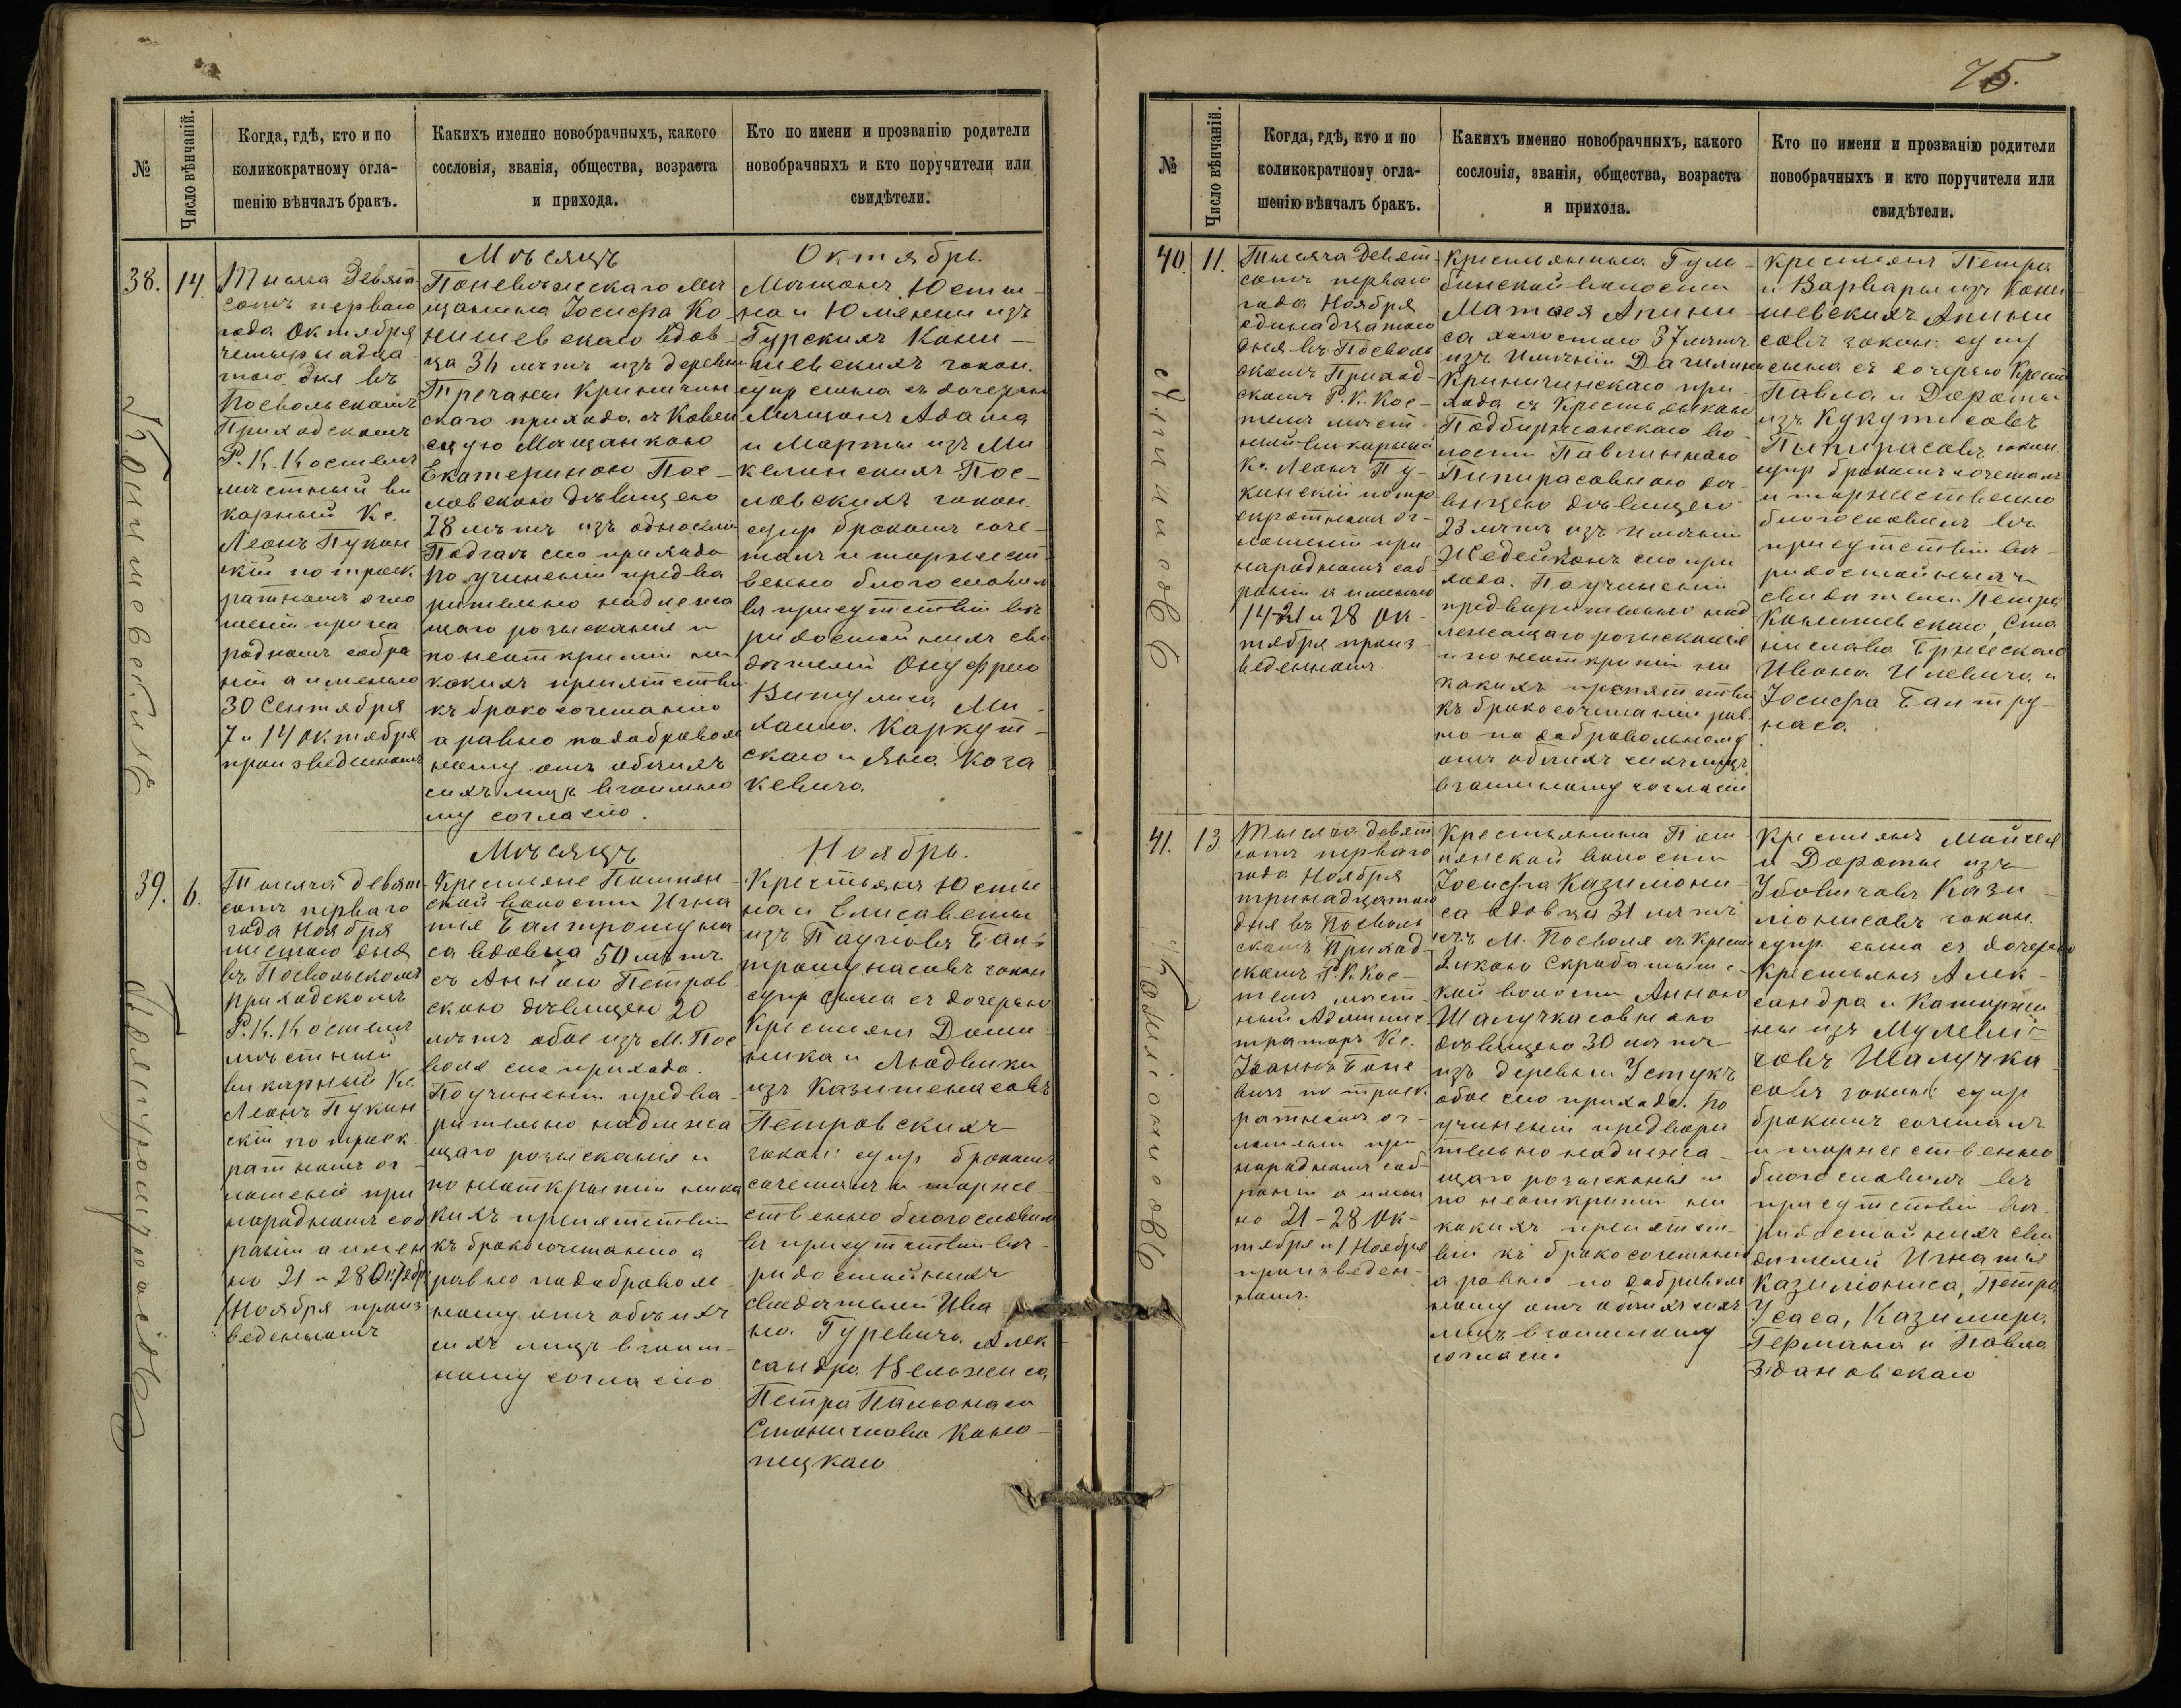 75.
№
Число вѣнчаній.
Когда, гдѣ, кто и по
коликократному огла-
шенію вѣнчалъ бракъ.
Какихъ именно новобрачныхъ, какого
сословія, званія, общества, возраста
и прихода.
Кто по имени и прозванію родители
новобрачныхъ и кто поручители или
свидѣтели.
Мѣсяцъ
Октябрь.
38.
14.
Тысяча девят
сотъ перваго
года Октября
четырнадца
таго дня въ
Посвольскомъ
Приходскомъ
Р. К. Костелѣ
мѣстный ви
карный Кс.
Леонъ Пукин
скій по троек
ратномъ огла
шеніи при на
родномъ собра
ніи а именно
30 Сентября
7 и 14 Октября
произведенномъ
Поневѣжскаго Мѣ
щанина Іосифа Ко
нишевскаго вдов
ца 36 лѣтъ изъ деревни
Тречаны Криничин
скаго прихода съ Ковен
скою Мѣщанкою
Екатериною Пос
ловскою дѣвицею
28 лѣтъ изъ
Подгаль сего прихода
По учиненіи предва
рительно надлежа
щаго розысканія и
по неоткрытіи ни
какихъ препятствій
къ бракосочетанію
а равно по доброволь
ному отъ обоихъ
сихъ лицъ взаимно
му согласію.
Мѣщанъ Юсти
на и Юліянны изъ
Гурскихъ Кони-
шевскихъ закон.
супр сына съ дочерью
Мѣщанъ Адама
и Марты изъ Ми
келинскихъ Пос-
ловскихъ закон.
супр бракомъ соче-
талъ и торжест
венно благословилъ
въ присутствіи вѣ
ридостойныхъ сви
дѣтелей Онуфрія
Витулиса, Ми
хаила Каркут
скаго и Яна Коза
кевича
Мѣсяцъ
Ноябрь.
39.
6.
Тысяча девят
сотъ перваго
года Ноября
шестаго дня
въ Посвольскомъ
приходскомъ
Р. К. Костелѣ
мѣстный
викарный Кс.
Леонъ Пукин
скій по троек
ратномъ ог
лашеніи при
народномъ соб
раніи а имен
но 21 и 28 Октябр
1 Ноября произ
веденномъ
Крестьяне Помпян
ской волости Игна
тія Балтромуна
са вдовца 50 лѣтъ
съ Анною Петров
скою дѣвицею 20
лѣтъ обое изъ М. Пос
воля сего прихода.
По учиненіи предва
рительно надлежа
щаго розысканія и
по неоткрытіи ника
кихъ препятствій
къ бракосочетанію а
равно по доброволь
ному отъ обоихъ
сихъ лицъ взаим
ному согласію
Крестьянъ Юсти
на и Елисаветы
изъ Пауговъ Бал
тромунасовъ закон
супр сына съ дочерью
Крестьянъ Доми
ника и Людвики
изъ Казименасовъ
Петровскихъ
закон: супр бракомъ
сочеталъ и торже
ственно благословилъ
въ присутствіи вѣ-
ридостойныхъ
свидѣтелей Ива
на Гуревича Алек
сандра Вельжиса,
Петра Пальонаса
Станислава Коно
пицкаго
Конишевскій
Балтромунасовъ
№
Число вѣнчаній.
Когда, гдѣ, кто и по
коликократному огла-
шенію вѣнчалъ бракъ.
Какихъ именно новобрачныхъ, какого
сословія, званія, общества, возраста
и прихода.
Кто по имени и прозванію родители
новобрачныхъ и кто поручители или
свидѣтели.
40.
11.
Тысяча девят
сотъ перваго
года Ноября
одинадцатаго
дня въ Посволь
скомъ Приход
скомъ Р. К. Кос-
телѣ мѣст
ный викарный
Кс. Леонъ Пу-
кинскій по тро
екратномъ ог-
лашеніи при
народномъ соб
раніи а именно
14 21 и 28 Ок-
тября произ
веденномъ
Крестьянина Гуль
бинской волости
Матвея Апини
са холостаго 37 лѣтъ
изъ Имѣнія Дагилишки
Криничинскаго при
хода съ Крестьянкою
Подбиржанскаго во
лости Павлинною
Пипирасовною дѣ
вицею
23 лѣтъ изъ Имѣнія
Жедейконь сего при
хода. По учиненіи
предварительно над
лежащаго розысканія
и по неоткрытіи ни
какихъ препятствій
къ бракосочетанію рав
но по добровольному
отъ обоихъ сихъ лицъ
взаимному согласію
Крестьянъ Петра
и Варвары изъ Кони
шевскихъ Апини
совъ закон. супр
сына съ дочерью Крест
Павла и Дороты
изъ Кукутисовъ
Пипирасовъ закон.
супр бракомъ сочеталъ
и торжественно
благословилъ въ
присутствіи вѣ-
ридостойныхъ
свидѣтелей Петра
Конишевскаго, Ста
нислава Бржескаго
Ивана Илевича и
Іосифа Балтру
наса.
41.
13
Тысяча девят
сотъ перваго
года Ноября
тринадцатаго
дня въ Посволь
скомъ Приход
скомъ Р. К. Кос-
телѣ мѣст
ный Админис
траторъ Кс.
по троек
ратномъ ог-
лашеніи при
народномъ соб
раніи а имен
но 21-28 Ок-
тября и 1 Ноября
произведен-
номъ
Крестьянина Пом
пянской волости
Іосифа Казиміони-
са вдовца 31 лѣтъ
изъ М. Посволя съ Крест
янкою Скробатышс-
кой волости Анною
Шалучкасовною
дѣвицею 30 лѣтъ
изъ деревни Устукъ
обое сего прихода. По
учиненіи предвари
тельно надлежа-
щаго розысканія и
по неоткрытіи ни
какихъ препятст
вій къ бракосочетанію
а равно по доброволь
ному отъ обоихъ сихъ
лицъ взаимному
согласію
Крестьянъ Мойсея
и Дороты изъ
Убовичовъ Кази
міонисовъ закон.
супр сына съ дочерью
Крестьянъ Алек-
сандра и Катаржи
ны изъ Мулеви-
човъ Шалучка
совъ закон: супр
бракомъ сочеталъ
и торжественно
благословилъ въ
присутствіи вѣ
ридостойныхъ сви
дѣтелей Игнатія
Казиміониса, Петра
Усаса, Казимира
Германа и Павла
Здановскаго
Апинисовъ
Казиміонисовъ